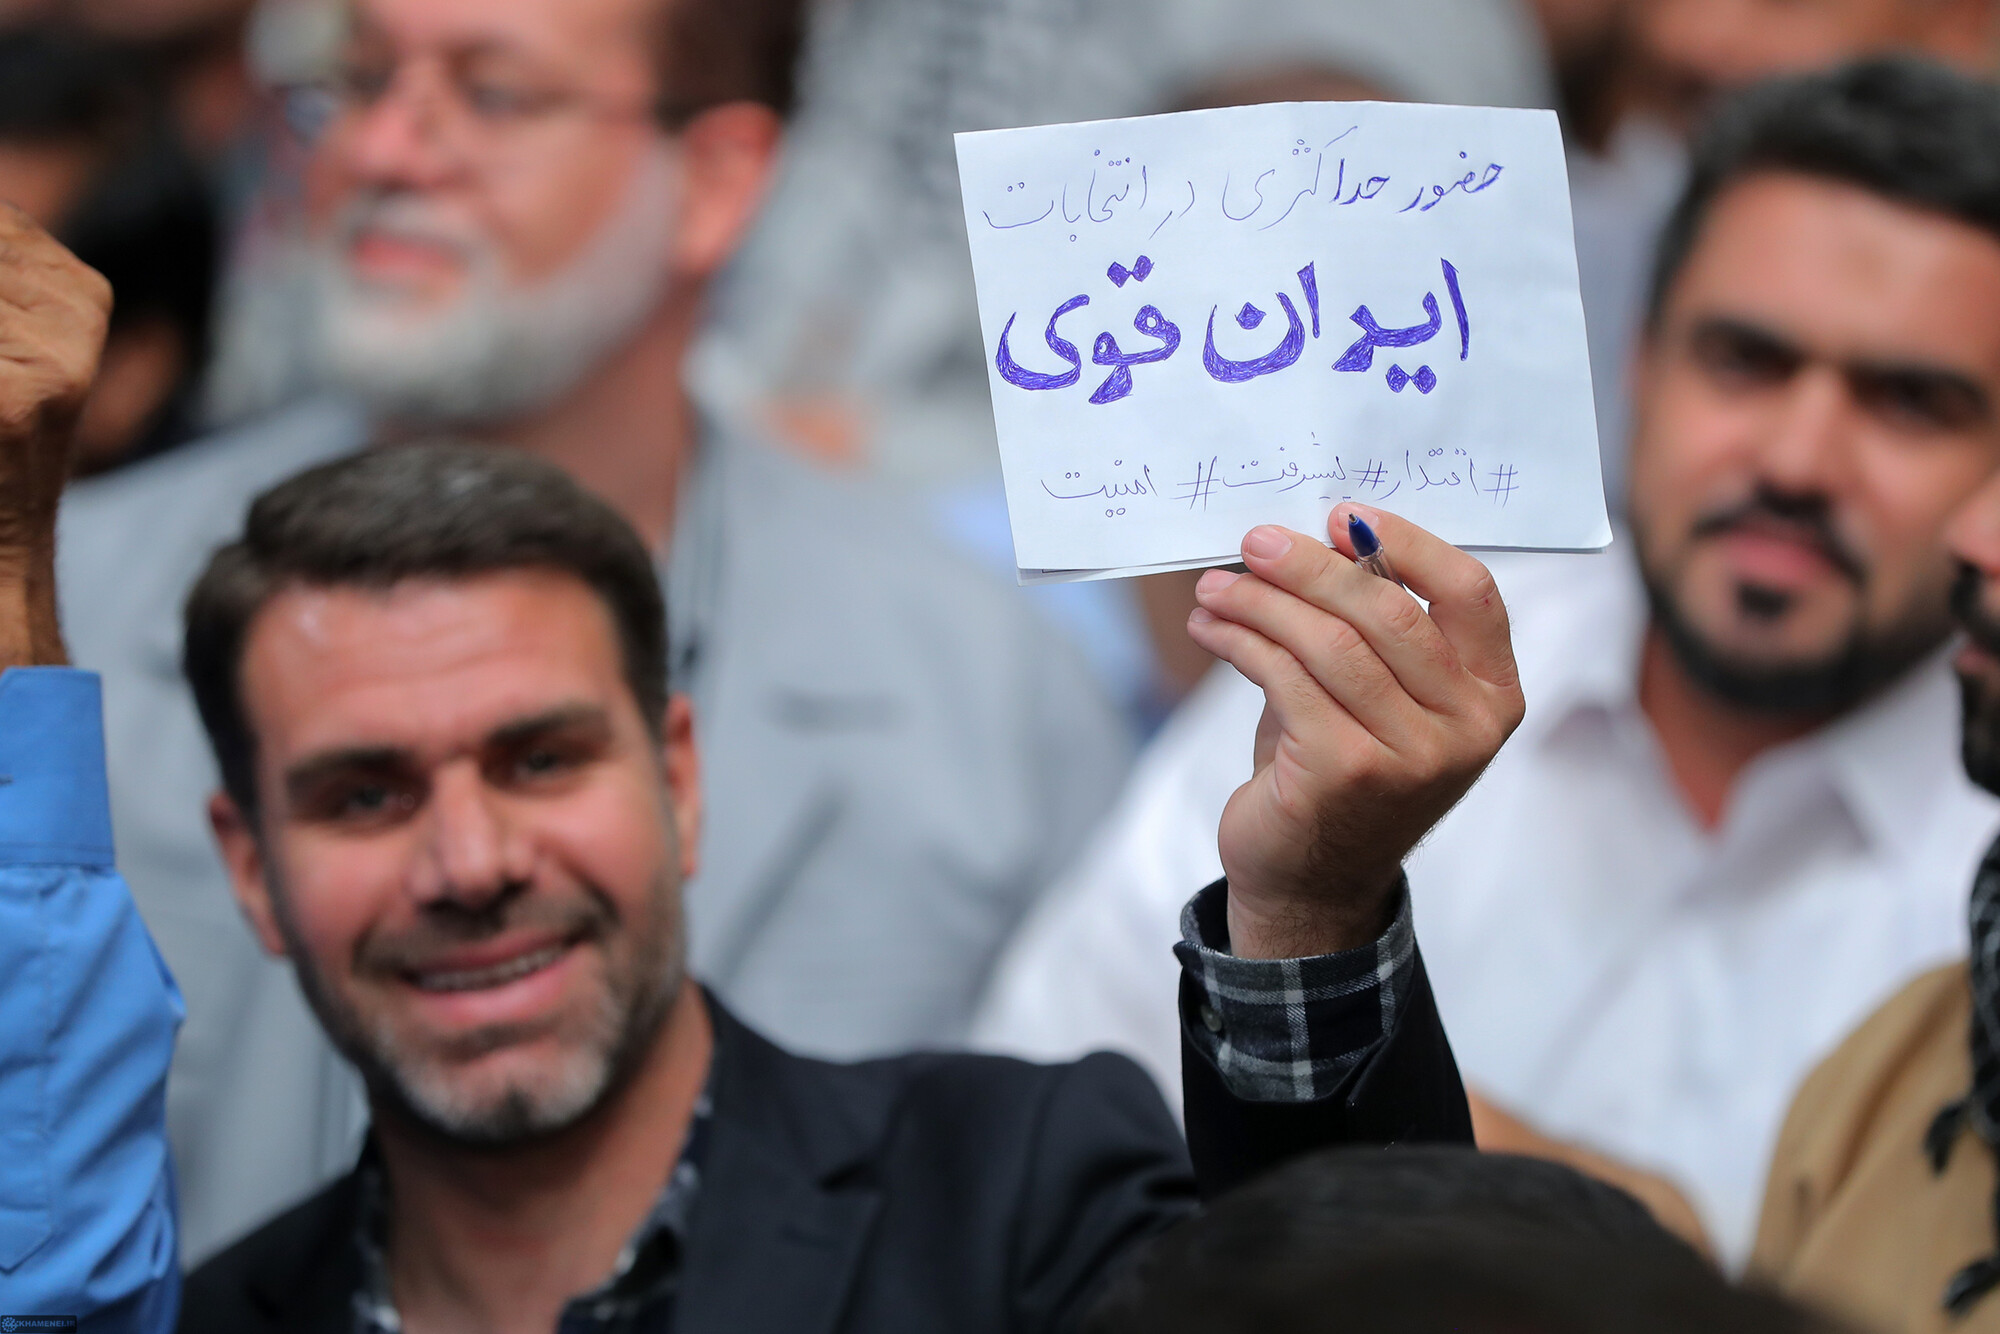 حضور حداکثری در انتخابات
ایران قوی
#اقتدار #پیشرفت #امنیت
KHAMENEI.IR